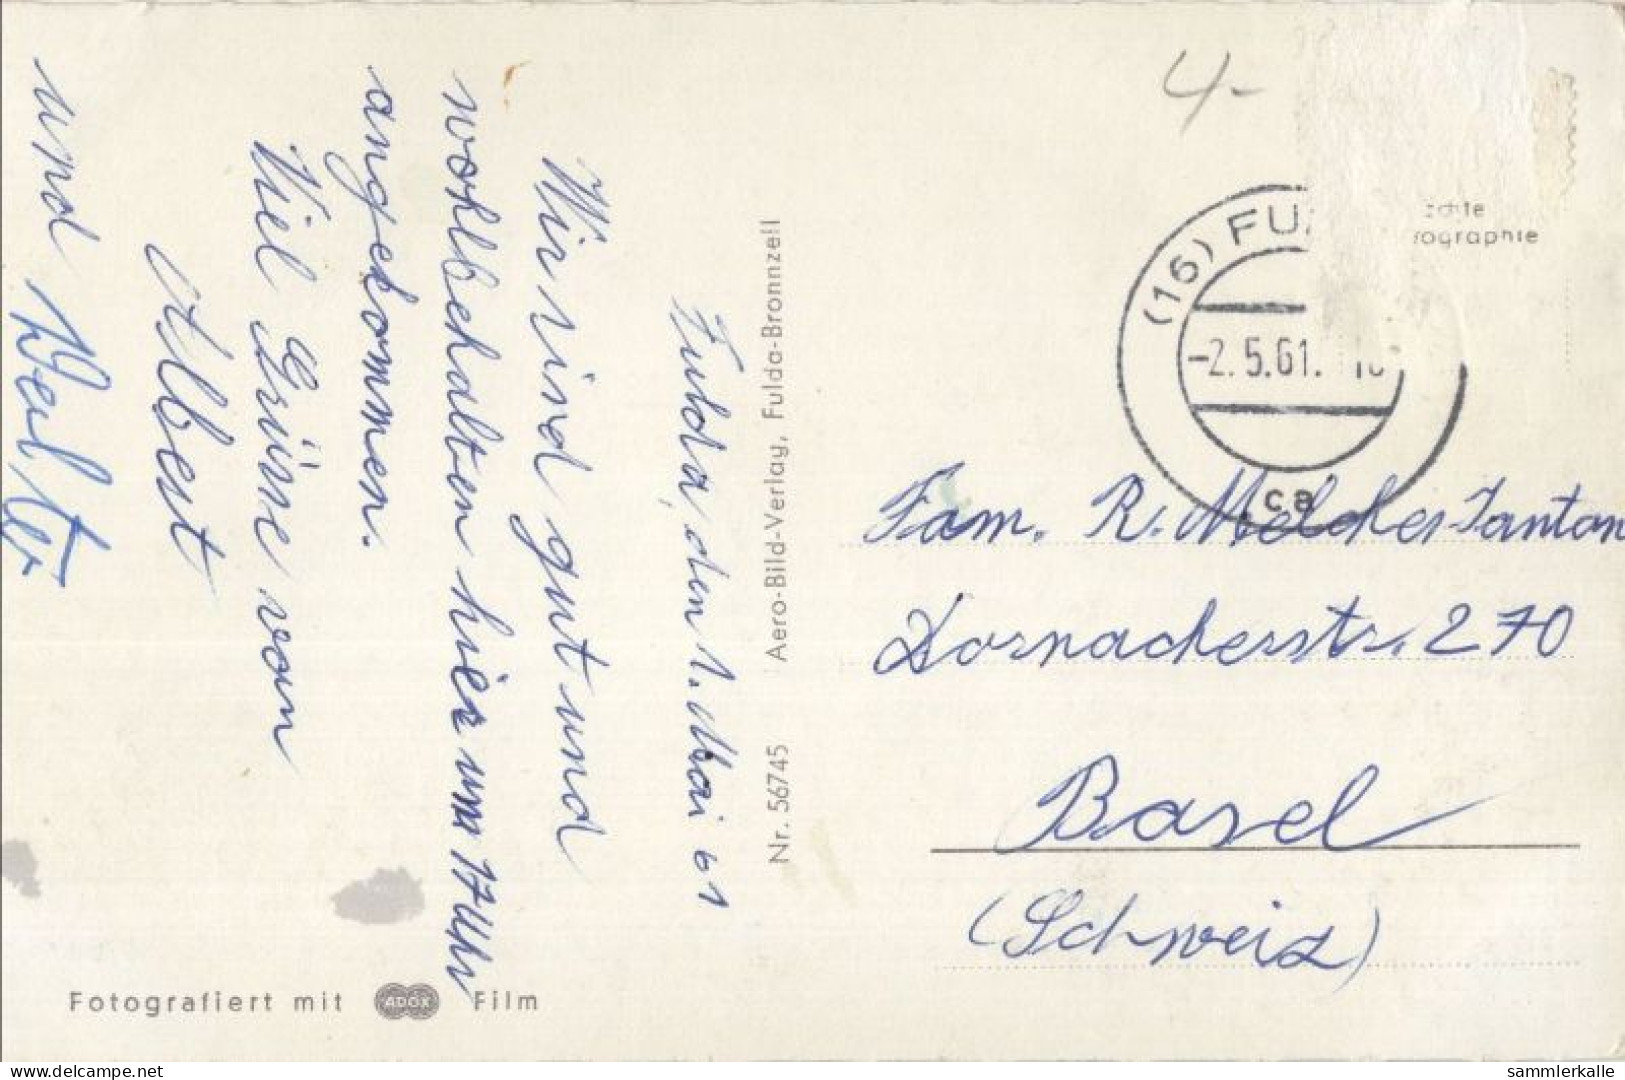 Fulda, den 1. Mai 61
Wir sind gut und
wohlbehalten hier um 17 Uhr
angekommen.
Viel Grüsse von
Albert
und Walter
Nr. 56745 Aero-Bild-Verlag, Fulda-Bronnzell
Fotografiert mit ADOX Film
4-
(16) FU
-2.5.61.
ca
Fam. R. Melcher-Tantan
Dornacherstr. 270
Basel
(Schweiz)
delcampe.net
sammlerkalle